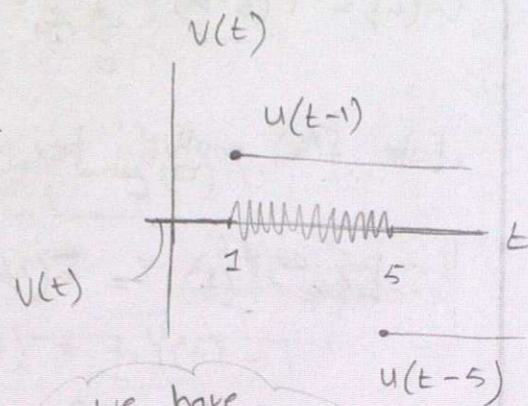 V(t)
u(t-1)
t
1
5
V(t)
u(t-5)
we have